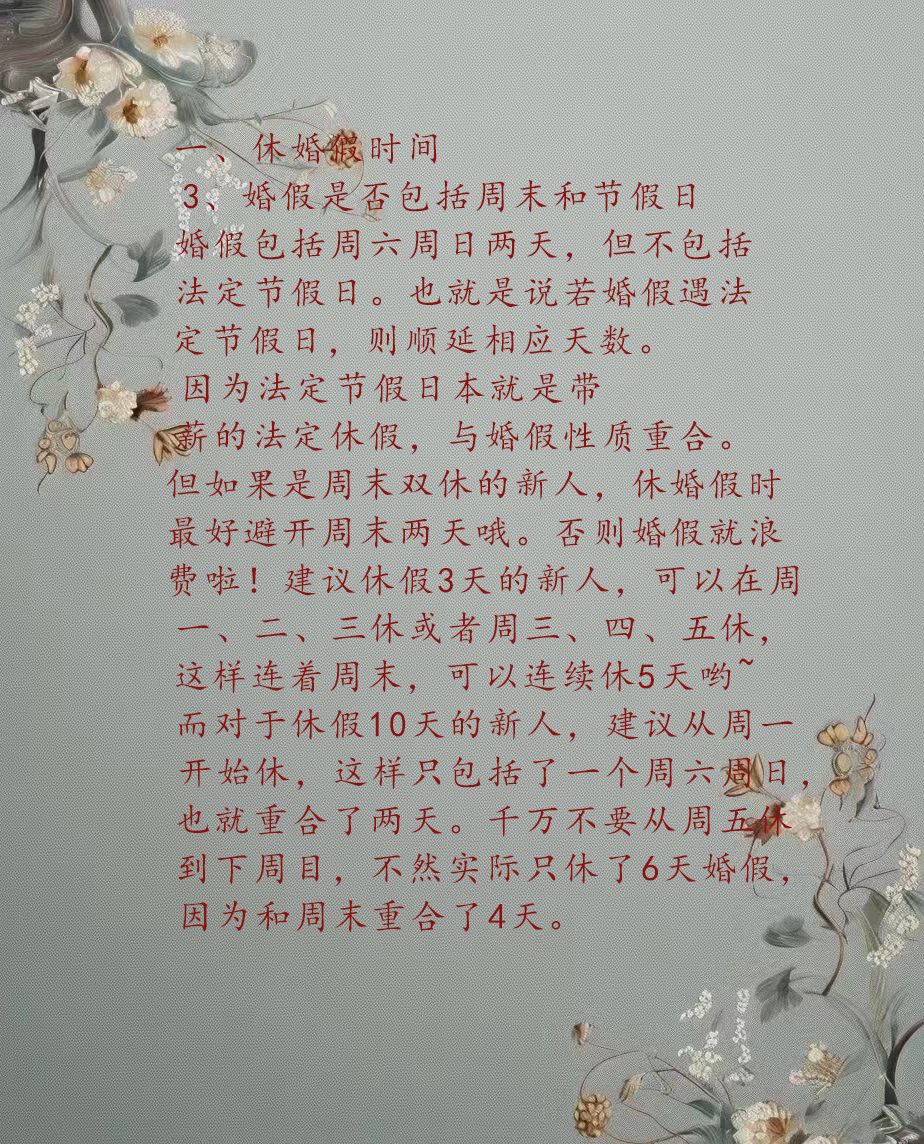 一、休婚假时间
3、婚假是否包括周末和节假日
婚假包括周六周日两天，但不包括
法定节假日。也就是说若婚假遇法
定节假日，则顺延相应天数。
因为法定节假日本就是带
薪的法定休假，与婚假性质重合。
但如果是周末双休的新人，休婚假时
最好避开周末两天哦。否则婚假就浪
费啦！建议休假3天的新人，可以在周
一、二、三休或者周三、四、五休，
这样连着周末，可以连续休5天哟~
而对于休假10天的新人，建议从周一
开始休，这样只包括了一个周六周日，
也就重合了两天。千万不要从周五休
到下周目，不然实际只休了6天婚假，
因为和周末重合了4天。